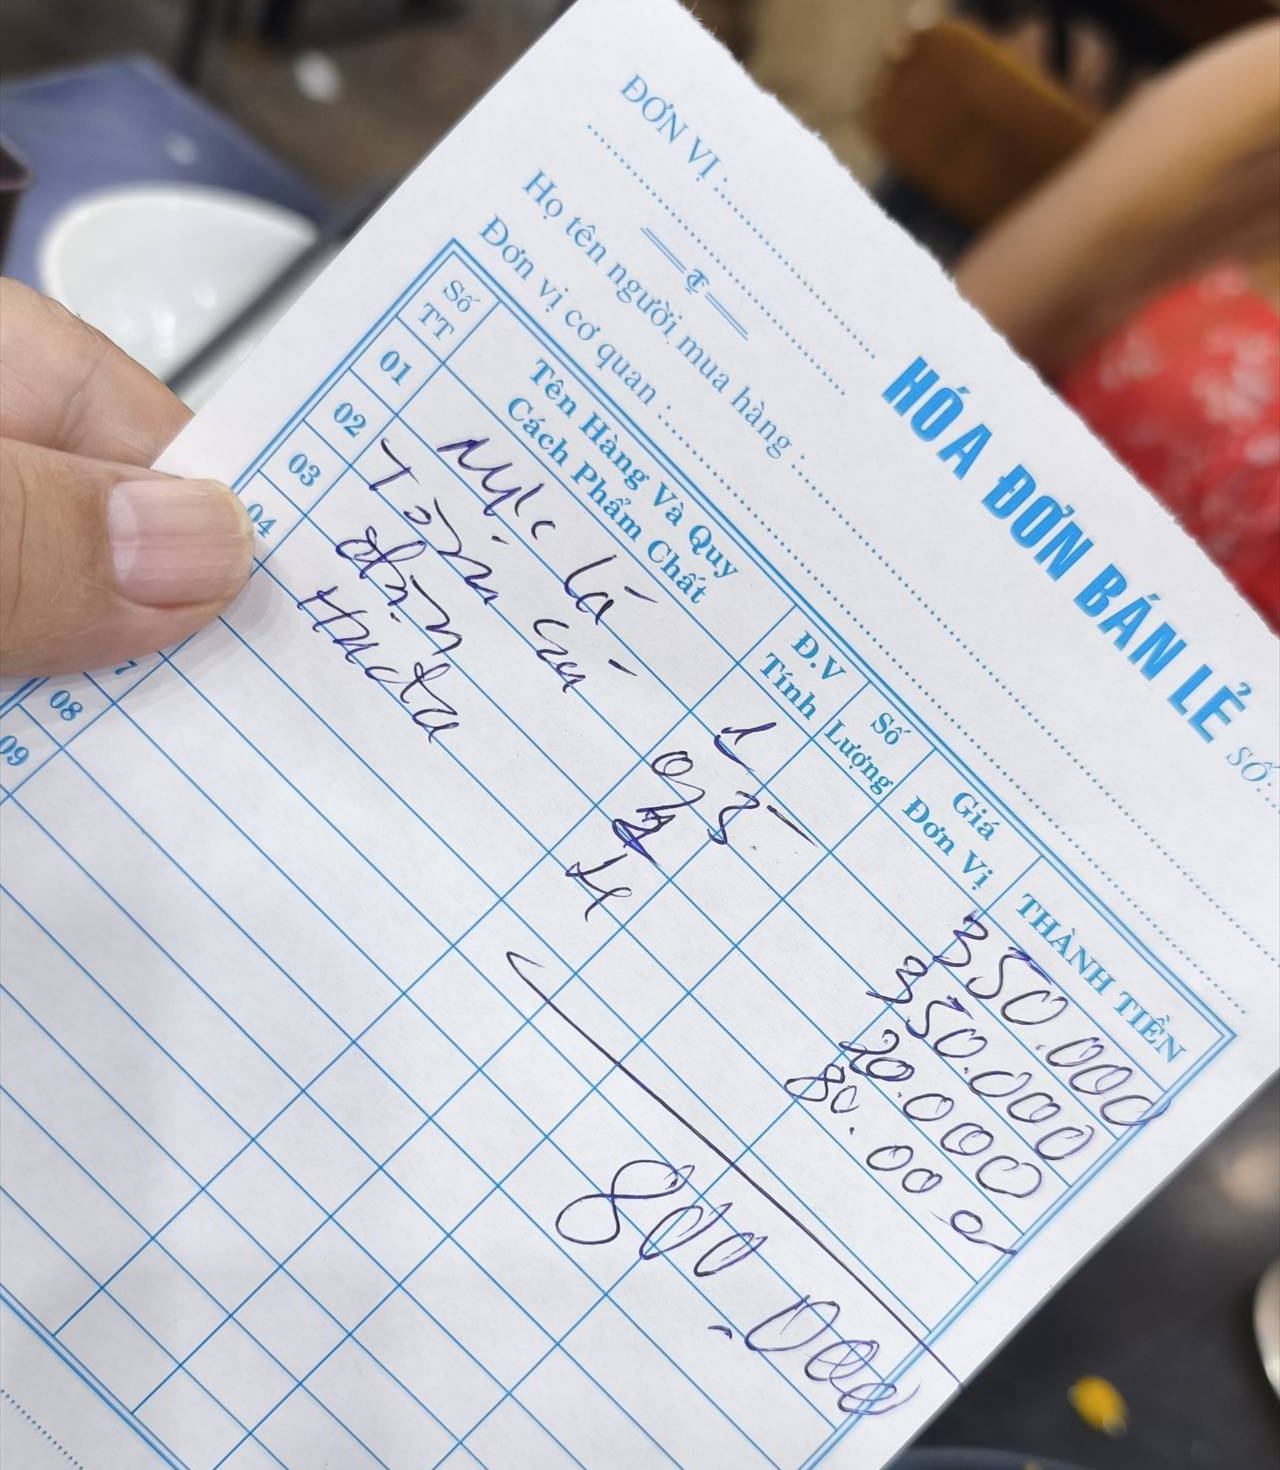 ĐƠN VỊ :
HÓA ĐƠN BÁN LẺ
SỐ:
Họ tên người mua hàng :
Đơn vị cơ quan :
Số TT
Tên Hàng Và Quy Cách Phẩm Chất
Đ.V Tính
Số Lượng
Giá Đơn Vị
THÀNH TIỀN
01 Mực lá 1 350.000
02 Tôm sú 0,5 350.000
03 1 20.000
04 Huda 4 80.000
08
09
800.000